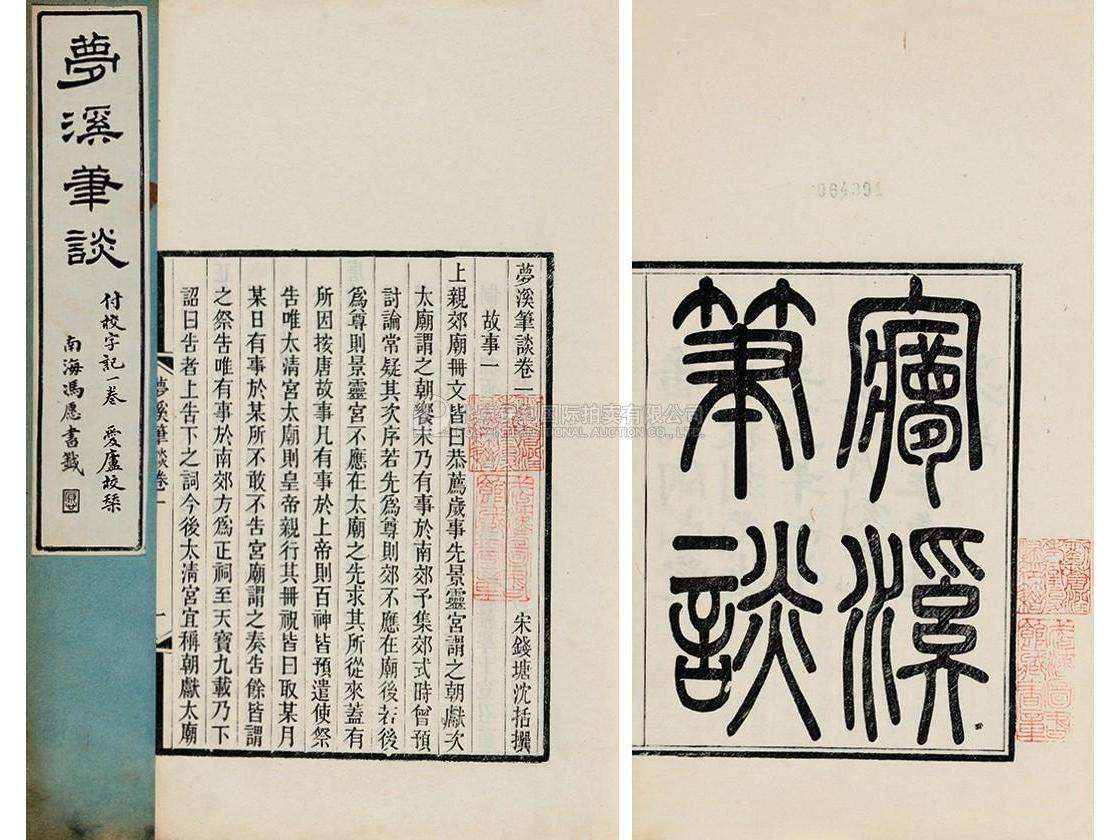 夢溪筆談
付校字記一卷 愛廬校栞
南海馮愿書籤
夢溪筆談卷一
宋錢塘沈括撰
故事一
上親郊廟冊文皆曰恭薦歲事先景靈宮謂之朝獻次
太廟謂之朝饗末乃有事於南郊予集郊式時曾預
討論常疑其次序若先爲尊則郊不應在廟後若後
爲尊則景靈宮不應在太廟之先求其所從來蓋有
所因按唐故事凡有事於上帝則百神皆預遣使祭
告唯太清宮太廟則皇帝親行其冊祝皆曰取某月
某日有事於某所不敢不告宮廟謂之奏告餘皆謂
之祭告唯有事於南郊方爲正祠至天寶九載乃下
詔曰告者上告下之詞今後太清宮宜稱朝獻太廟
夢溪筆談卷一
一
國际拍卖有限公司
AUCTION CO., LTD.
064091
寱溪
筆談